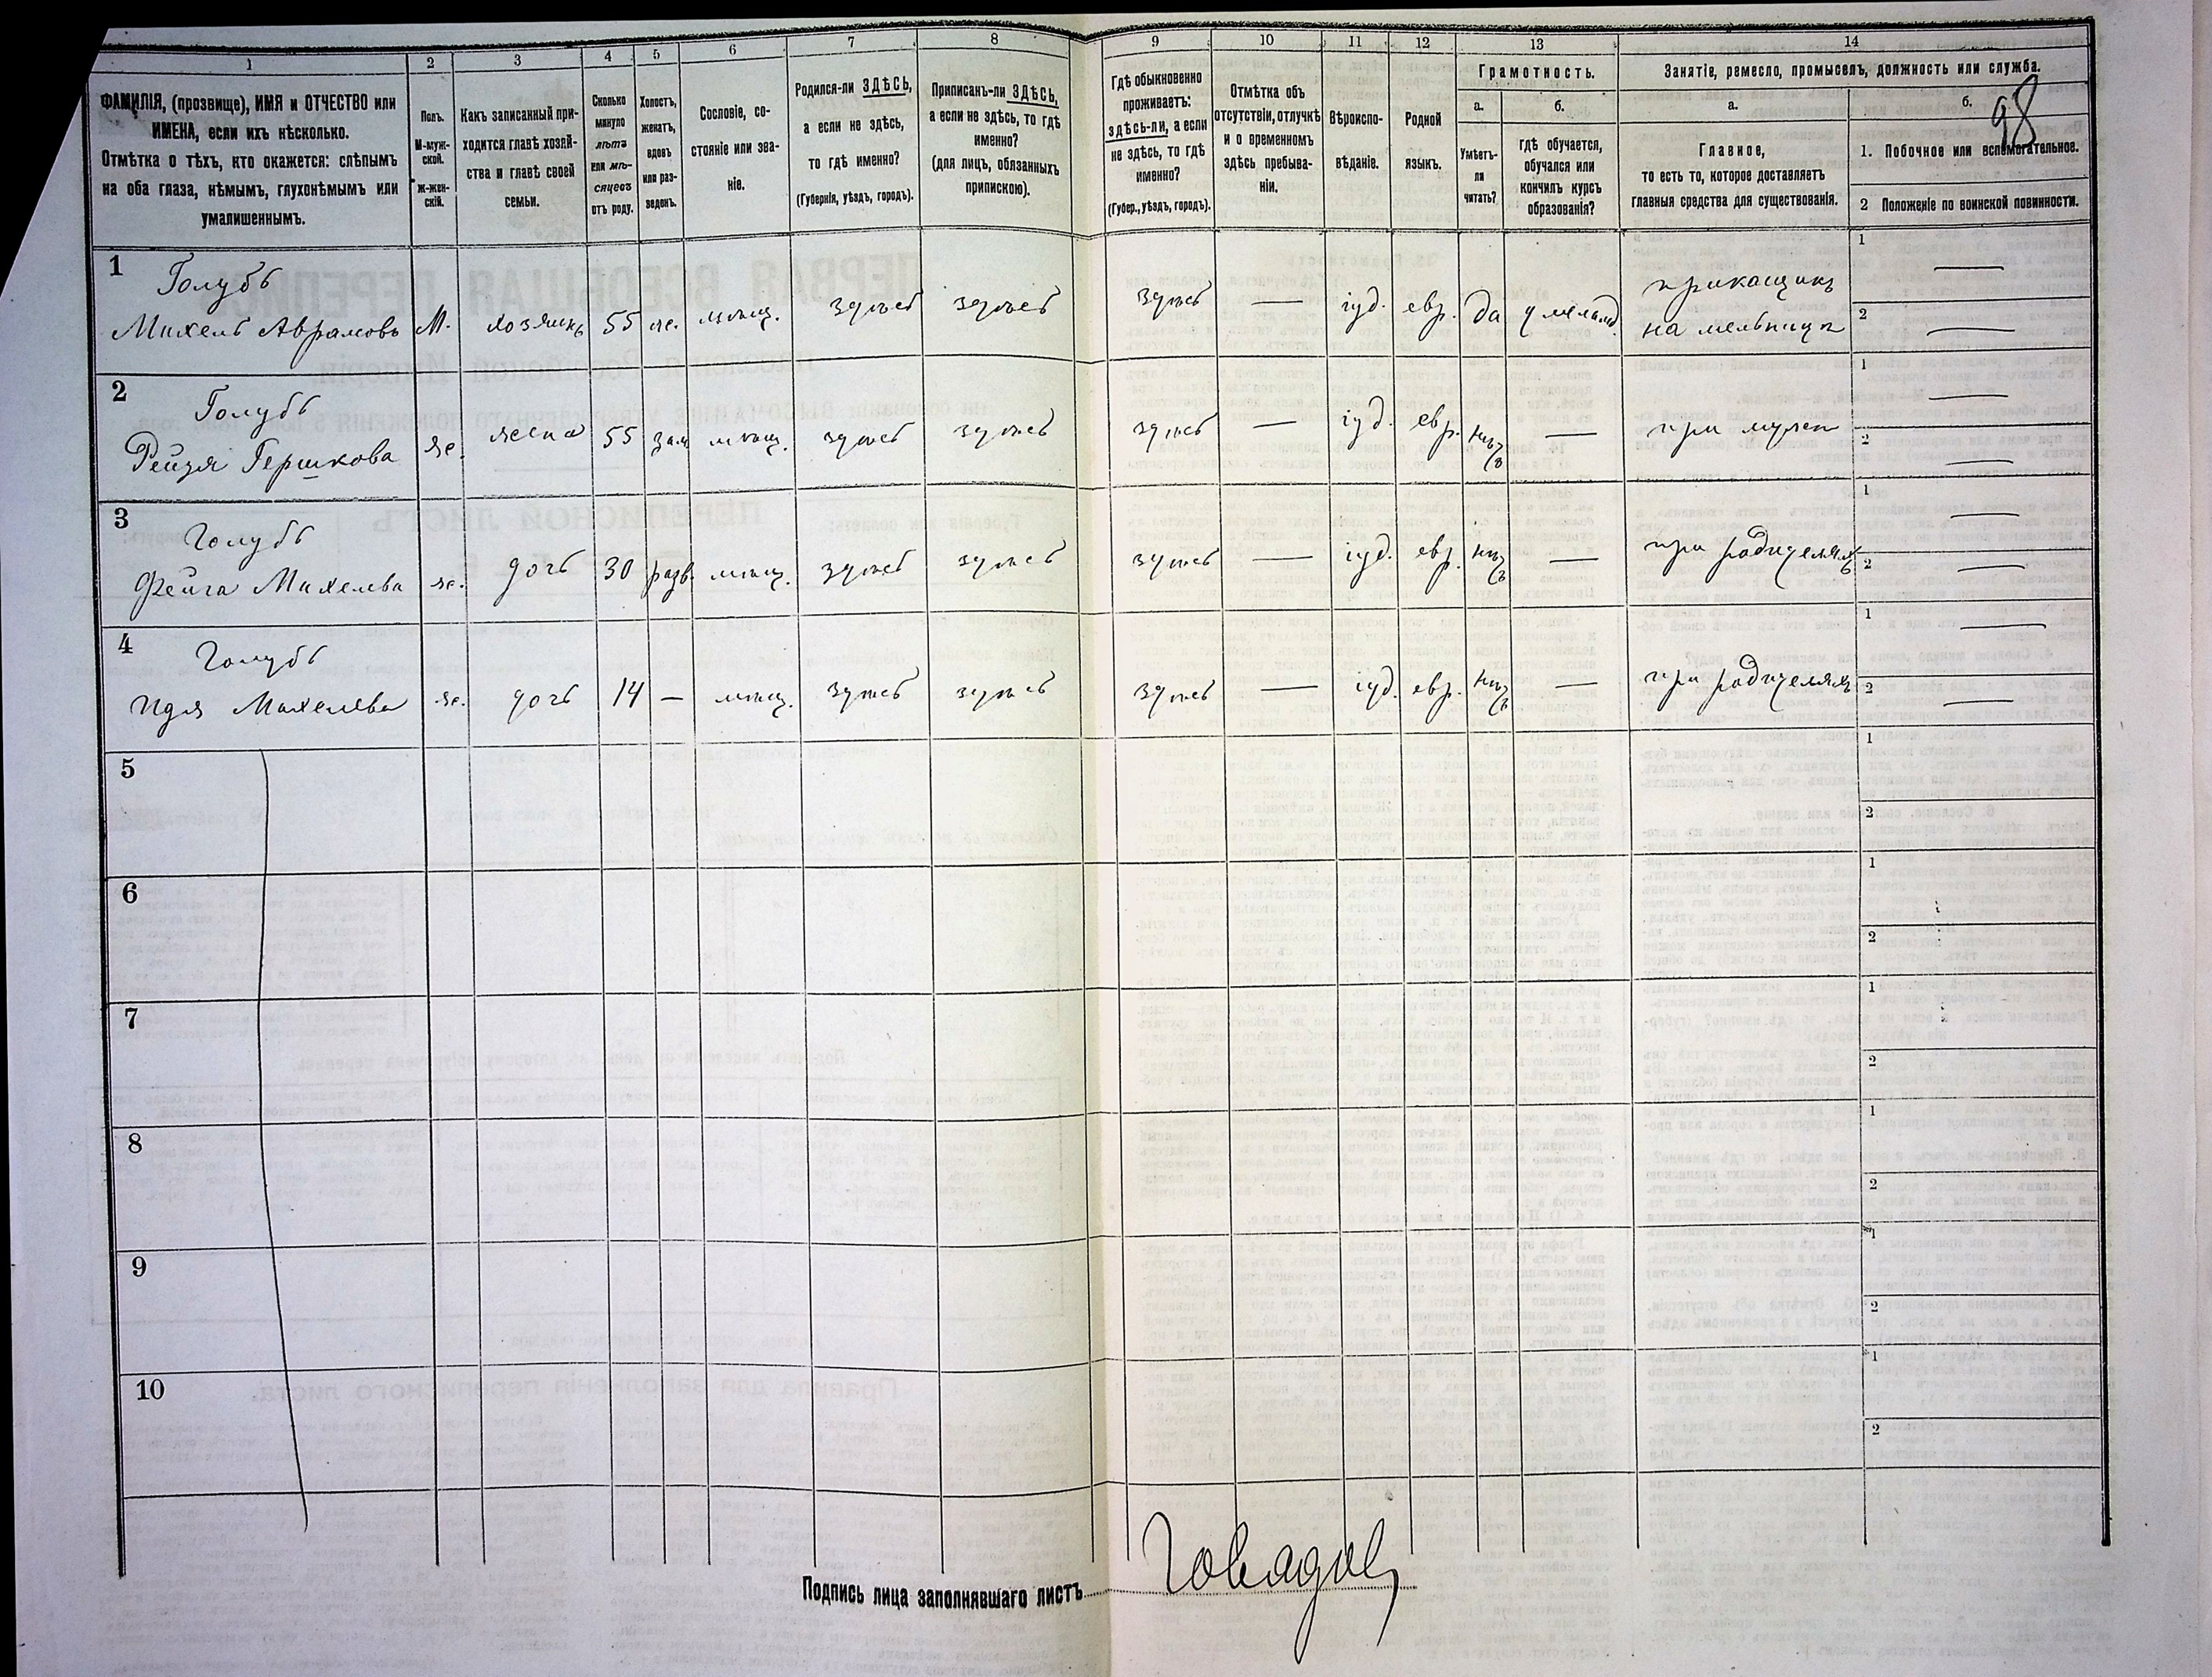 1 2 3 4 5 6 7 8 9 10 11 12 13 14
98
ФАМИЛІЯ, (прозвище), ИМЯ и ОТЧЕСТВО или
ИМЕНА, если ихъ нѣсколько.
Отмѣтка о тѣхъ, кто окажется: слѣпымъ
на оба глаза, нѣмымъ, глухонѣмымъ или
умалишеннымъ.
Полъ.
М-муж-
ской.
ж-жен-
скій.
Какъ записанный при-
ходится главѣ хозяй-
ства и главѣ своей
семьи.
Сколько
минуло
лѣтъ
или мѣ-
сяцевъ
отъ роду.
Холостъ,
женатъ,
вдовъ
или раз-
веденъ.
Сословіе, со-
стояніе или зва-
ніе.
Родился-ли ЗДѢСЬ,
а если не здѣсь,
то гдѣ именно?
(Губернія, уѣздъ, городъ).
Приписанъ-ли ЗДѢСЬ,
а если не здѣсь, то гдѣ
именно?
(для лицъ, обязанныхъ
припискою).
Гдѣ обыкновенно
проживаетъ:
здѣсь-ли, а если
не здѣсь, то гдѣ
именно?
(Губер., уѣздъ, городъ).
Отмѣтка объ
отсутствіи, отлучкѣ
и о временномъ
здѣсь пребыва-
ніи.
Вѣроиспо-
вѣданіе.
Родной
языкъ.
Грамотность.
а.
Умѣетъ-
ли
читать?
б.
гдѣ обучается,
обучался или
кончилъ курсъ
образованія?
Занятіе, ремесло, промыселъ, должность или служба.
а.
Главное,
то есть то, которое доставляетъ
главныя средства для существованія.
б.
1. Побочное или вспомогательное.
2 Положеніе по воинской повинности.
1 Голубь
Михель Аврамовъ М. хозяинъ 55 же. мѣщ. здѣсь здѣсь здѣсь — іуд. евр. да у меламд. прикащикъ
на мельницѣ
1 —
2 —
2 Голубь
Рейзя Гершкова же. жена 55 зам мѣщ. здѣсь здѣсь здѣсь — іуд. евр. нѣтъ — при мужѣ
1 —
2 —
3 Голубь
Фейга Михелева же. дочь 30 разв. мѣщ. здѣсь здѣсь здѣсь — іуд. евр. нѣтъ — при родителяхъ
1 —
2 —
4 Голубь
Идя Михелева же. дочь 14 — мѣщ. здѣсь здѣсь здѣсь — іуд. евр. нѣтъ — при родителяхъ
1 —
2 —
5 1
2
6 1
2
7 1
2
8 1
2
9 1
2
10 1
2
Подпись лица заполнявшаго листъ